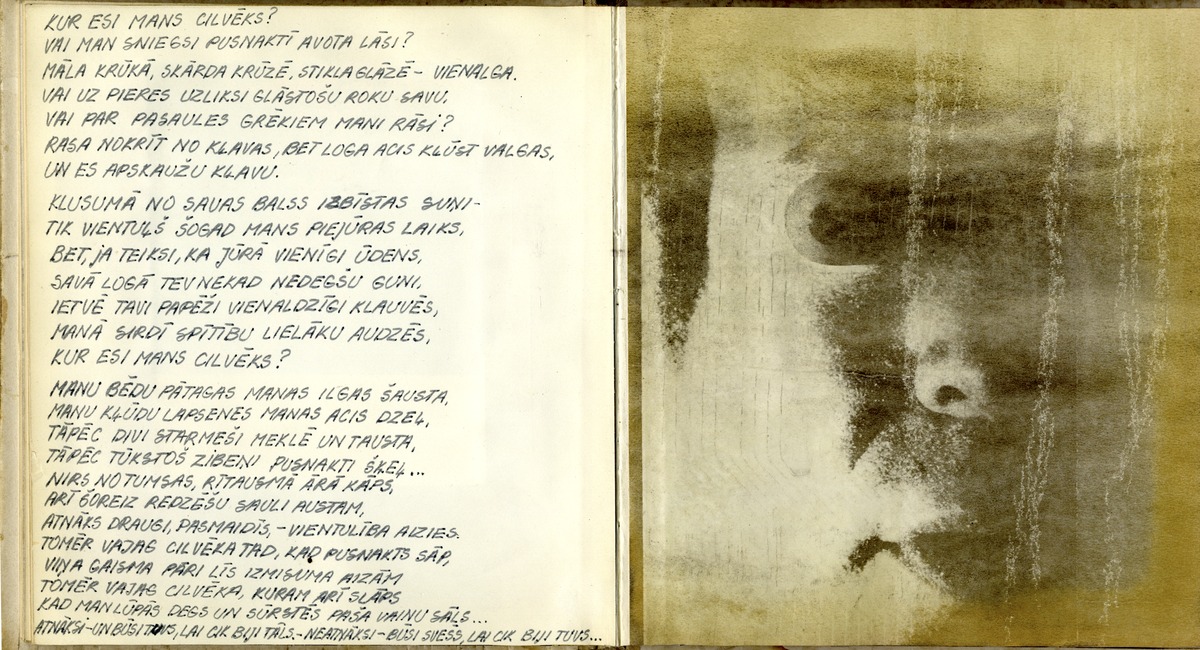 KUR ESI MANS CILVĒKS?
VAI MAN SNIEGSI PUSNAKTĪ AVOTA LĀSI?
MĀLA KRŪKĀ, SKĀRDA KRŪZĒ, STIKLA GLĀZĒ – VIENALGA.
VAI UZ PIERES UZLIKSI GLĀSTOŠU ROKU SAVU.
VAI PAR PASAULES GRĒKIEM MANI RĀSI?
RASA NOKRĪT NO KĻAVAS, BET LOGA ACIS KĻŪST VALGAS,
UN ES APSKAUŽU KĻAVU.
KLUSUMĀ NO SAVAS BALSS IZBĪSTAS SUŅI –
TIK VIENTUĻŠ ŠOGAD MANS PIEJŪRAS LAIKS,
BET, JA TEIKSI, KA JŪRĀ VIENĪGI ŪDENS,
SAVĀ LOGĀ TEV NEKAD NEDEGŠU GUNI.
IETVĒ TAVI PAPĒŽI VIENALDZĪGI KLAUVĒS,
MANĀ SIRDĪ SPĪTĪBU LIELĀKU AUDZĒS,
KUR ESI MANS CILVĒKS?
MANU BĒDU PĀTAGAS MANAS ILGAS ŠAUSTA,
MANU KĻŪDU LAPSENES MANAS ACIS DZEĻ,
TĀPĒC DIVI STARMEŠI MEKLĒ UN TAUSTA,
TĀPĒC TŪKSTOŠ ZIBEŅI PUSNAKTI ŠĶEĻ...
NIRS NO TUMSAS, RĪTAUSMĀ ĀRĀ KĀPS,
ARĪ ŠOREIZ REDZĒŠU SAULI AUSTAM,
ATNĀKS DRAUGI, PASMAIDĪS, – VIENTULĪBA AIZIES.
TOMĒR VAJAG CILVĒKA TAD, KAD PUSNAKTS SĀP,
VIŅA GAISMA PĀRI LĪS IZMISUMA AIZĀM
TOMĒR VAJAG CILVĒKA, KURAM ARĪ SLĀPS
KAD MAN LŪPĀS DEGS UN SŪRSTĒS PAŠA VAINU SĀLS...
ATNĀKSI – UN BŪSI TUVS, LAI CIK BIJI TĀLS. – NEATNĀKSI – BŪSI SVESS, LAI CIK BIJI TUVS...